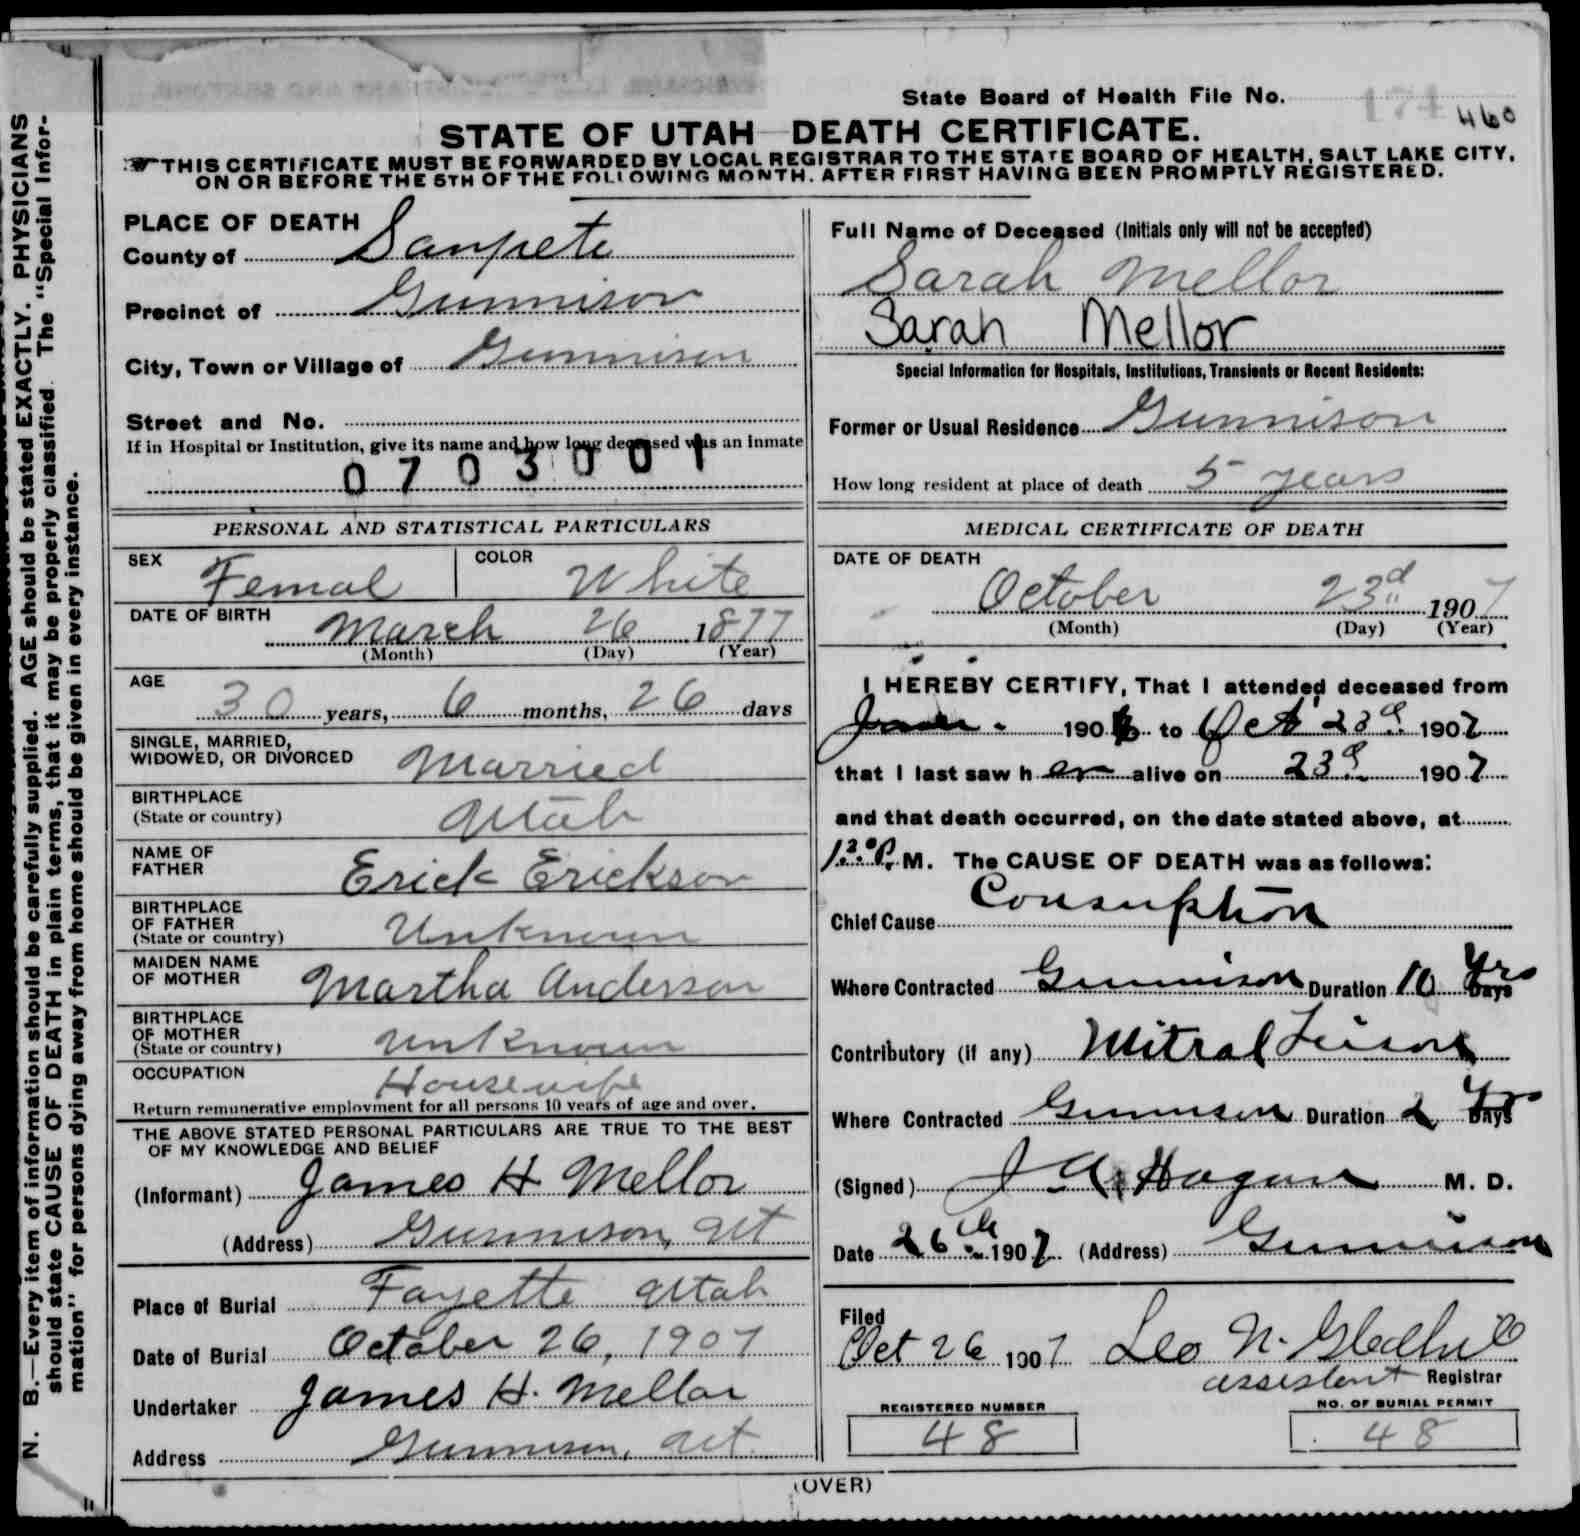 State Board of Health File No. 174 460
STATE OF UTAH DEATH CERTIFICATE.
THIS CERTIFICATE MUST BE FORWARDED BY LOCAL REGISTRAR TO THE STATE BOARD OF HEALTH, SALT LAKE CITY,
ON OR BEFORE THE 5TH OF THE FOLLOWING MONTH. AFTER FIRST HAVING BEEN PROMPTLY REGISTERED.
PLACE OF DEATH
County of Sanpete
Precinct of Gunnison
City, Town or Village of Gunnison
Street and No.
If in Hospital or Institution, give its name and how long deceased was an inmate
0703001
PERSONAL AND STATISTICAL PARTICULARS
SEX Femal COLOR White
DATE OF BIRTH March 26 1877
(Month) (Day) (Year)
AGE
30 years, 6 months, 26 days
SINGLE, MARRIED,
WIDOWED, OR DIVORCED Married
BIRTHPLACE
(State or country) Utah
NAME OF
FATHER Erick Erickson
BIRTHPLACE
OF FATHER
(State or country) Unknown
MAIDEN NAME
OF MOTHER Martha Anderson
BIRTHPLACE
OF MOTHER
(State or country) Unknown
OCCUPATION Housewife
Return remunerative employment for all persons 10 years of age and over.
THE ABOVE STATED PERSONAL PARTICULARS ARE TRUE TO THE BEST
OF MY KNOWLEDGE AND BELIEF
(Informant) James H Mellor
(Address) Gunnison, Ut
Place of Burial Fayette Utah
Date of Burial October 26, 1907
Undertaker James H. Mellor
Address Gunnison, Ut.
Full Name of Deceased (Initials only will not be accepted)
Sarah Mellor
Sarah Mellor
Special Information for Hospitals, Institutions, Transients or Recent Residents:
Former or Usual Residence Gunnison
How long resident at place of death 5 years
MEDICAL CERTIFICATE OF DEATH
DATE OF DEATH
October 23d 1907
(Month) (Day) (Year)
I HEREBY CERTIFY, That I attended deceased from
190 to Oct 23d 1907
that I last saw her alive on 23d 1907
and that death occurred, on the date stated above, at
P. M. The CAUSE OF DEATH was as follows:
Chief Cause Consuption
Where Contracted Gunnison Duration 10 Yrs Days
Contributory (if any) Mitral
Where Contracted Gunnison Duration 2 Yrs Days
(Signed) J A Hagan M. D.
Date 26th 1907 (Address) Gunnison
Filed
Oct 26 1907 Leo N. Gledhill
assistent Registrar
REGISTERED NUMBER
48
NO. OF BURIAL PERMIT
48
(OVER)
N. B.—Every item of information should be carefully supplied. AGE should be stated EXACTLY. PHYSICIANS
should state CAUSE OF DEATH in plain terms, that it may be properly classified. The "Special Infor-
mation" for persons dying away from home should be given in every instance.